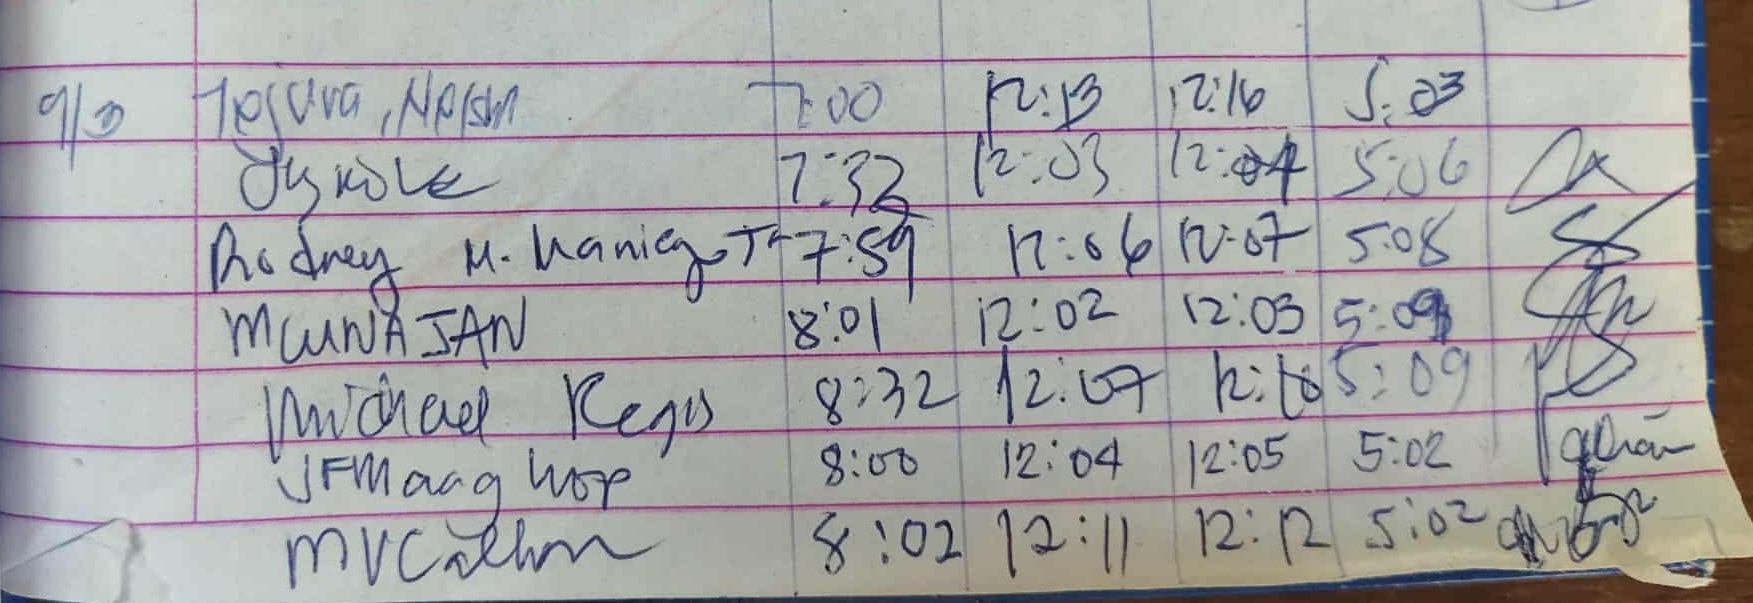 9/3 Tesura, Nelson 7:00 12:13 12:16 5:03
7:32 12:03 12:04 5:06
Rodney M. Kaniego Jr 7:59 12:06 12:07 5:08
MCUNAJAN 8:01 12:02 12:03 5:09
Michael Regis 8:32 12:07 12:10 5:09
JFMaag 8:00 12:04 12:05 5:02
8:02 12:11 12:12 5:02